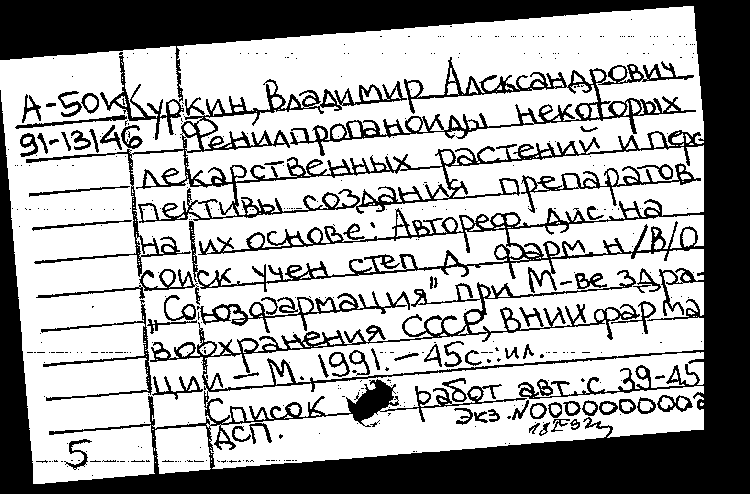 А-50К Куркин, Владимир Александрович
91-13146 / Фенилпропаноиды некоторых
лекарственных растений и перс
пективы создания препаратов
на их основе: Автореф. дис. на
соиск. учен степ д. фарм. н /В/О
„Союзфармация" при М-ве здра-
воохранения СССР, ВНИИ фарма
ции. – М., 1991. – 45с.: ил.
Список работ авт.: с 39-45
Экз. N0000000002
ДСП.
5